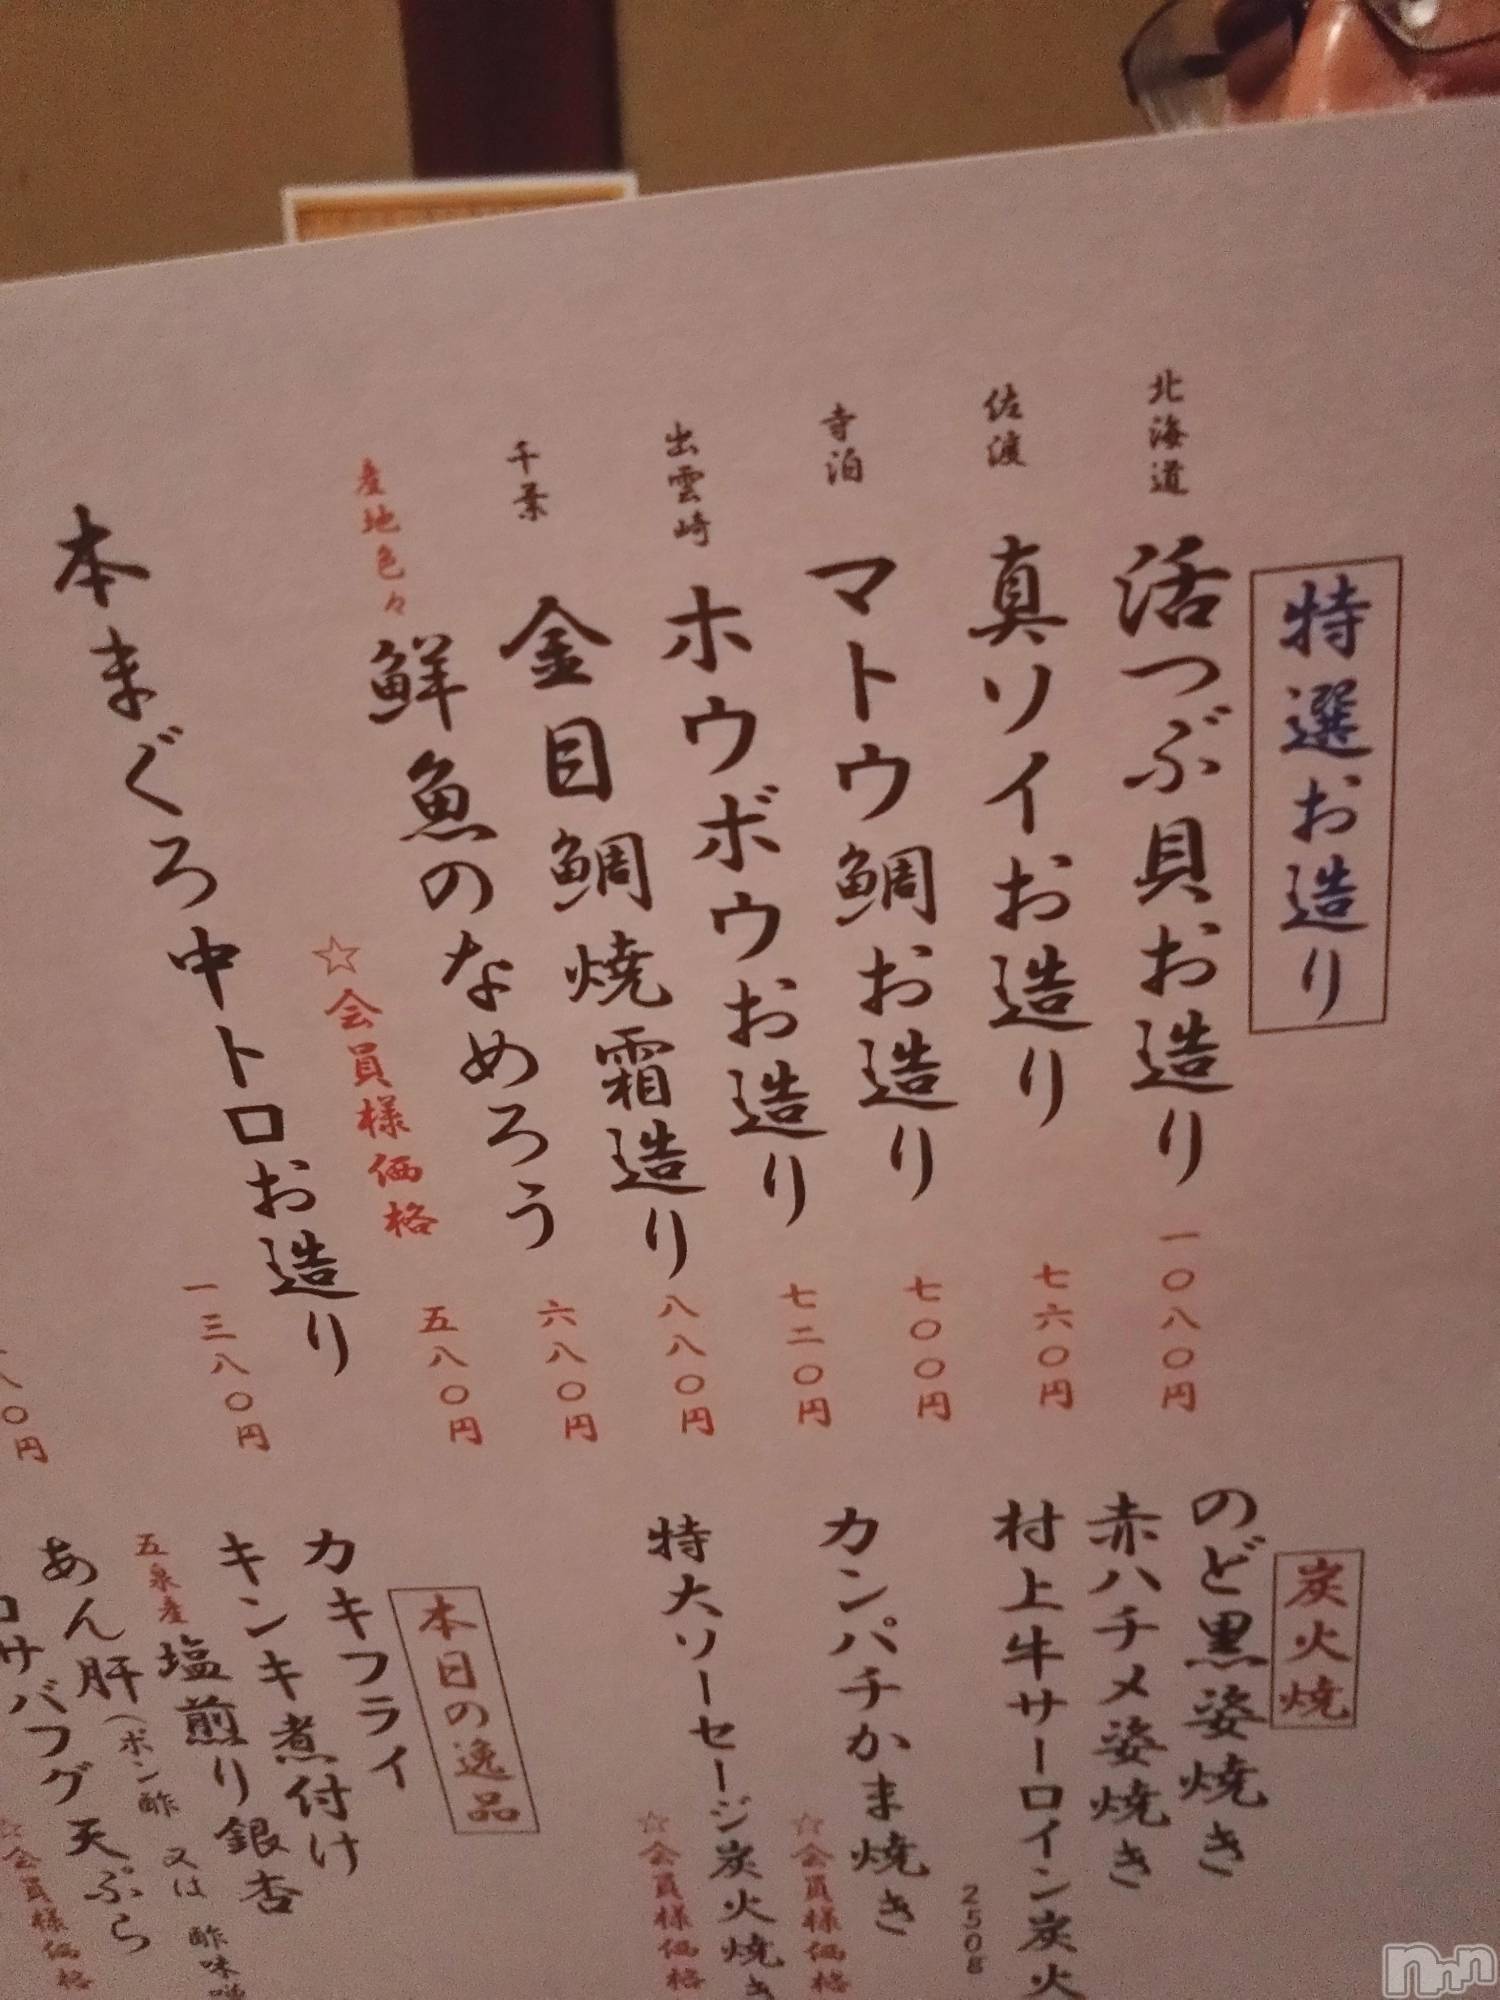 特選お造り
北海道 活つぶ貝お造り 一〇八〇円
佐渡 真ソイお造り 七六〇円
寺泊 マトウ鯛お造り 七〇〇円
出雲崎 ホウボウお造り 七二〇円
千葉 金目鯛焼霜造り 八八〇円
産地色々 鮮魚のなめろう 六八〇円
☆会員様価格 五八〇円
本まぐろ中トロお造り 一三八〇円
八〇円
炭火焼
のど黒姿焼き
赤ハチメ姿焼き
村上牛サーロイン炭火
250g
カンパチかま焼き
☆会員様価格
特大ソーセージ炭火焼き
☆会員様価格
本日の逸品
カキフライ
キンキ煮付け
五泉産 塩煎り銀杏
あん肝(ポン酢 又は 酢味噌
サバフグ天ぷら
☆会員様価格
nnn